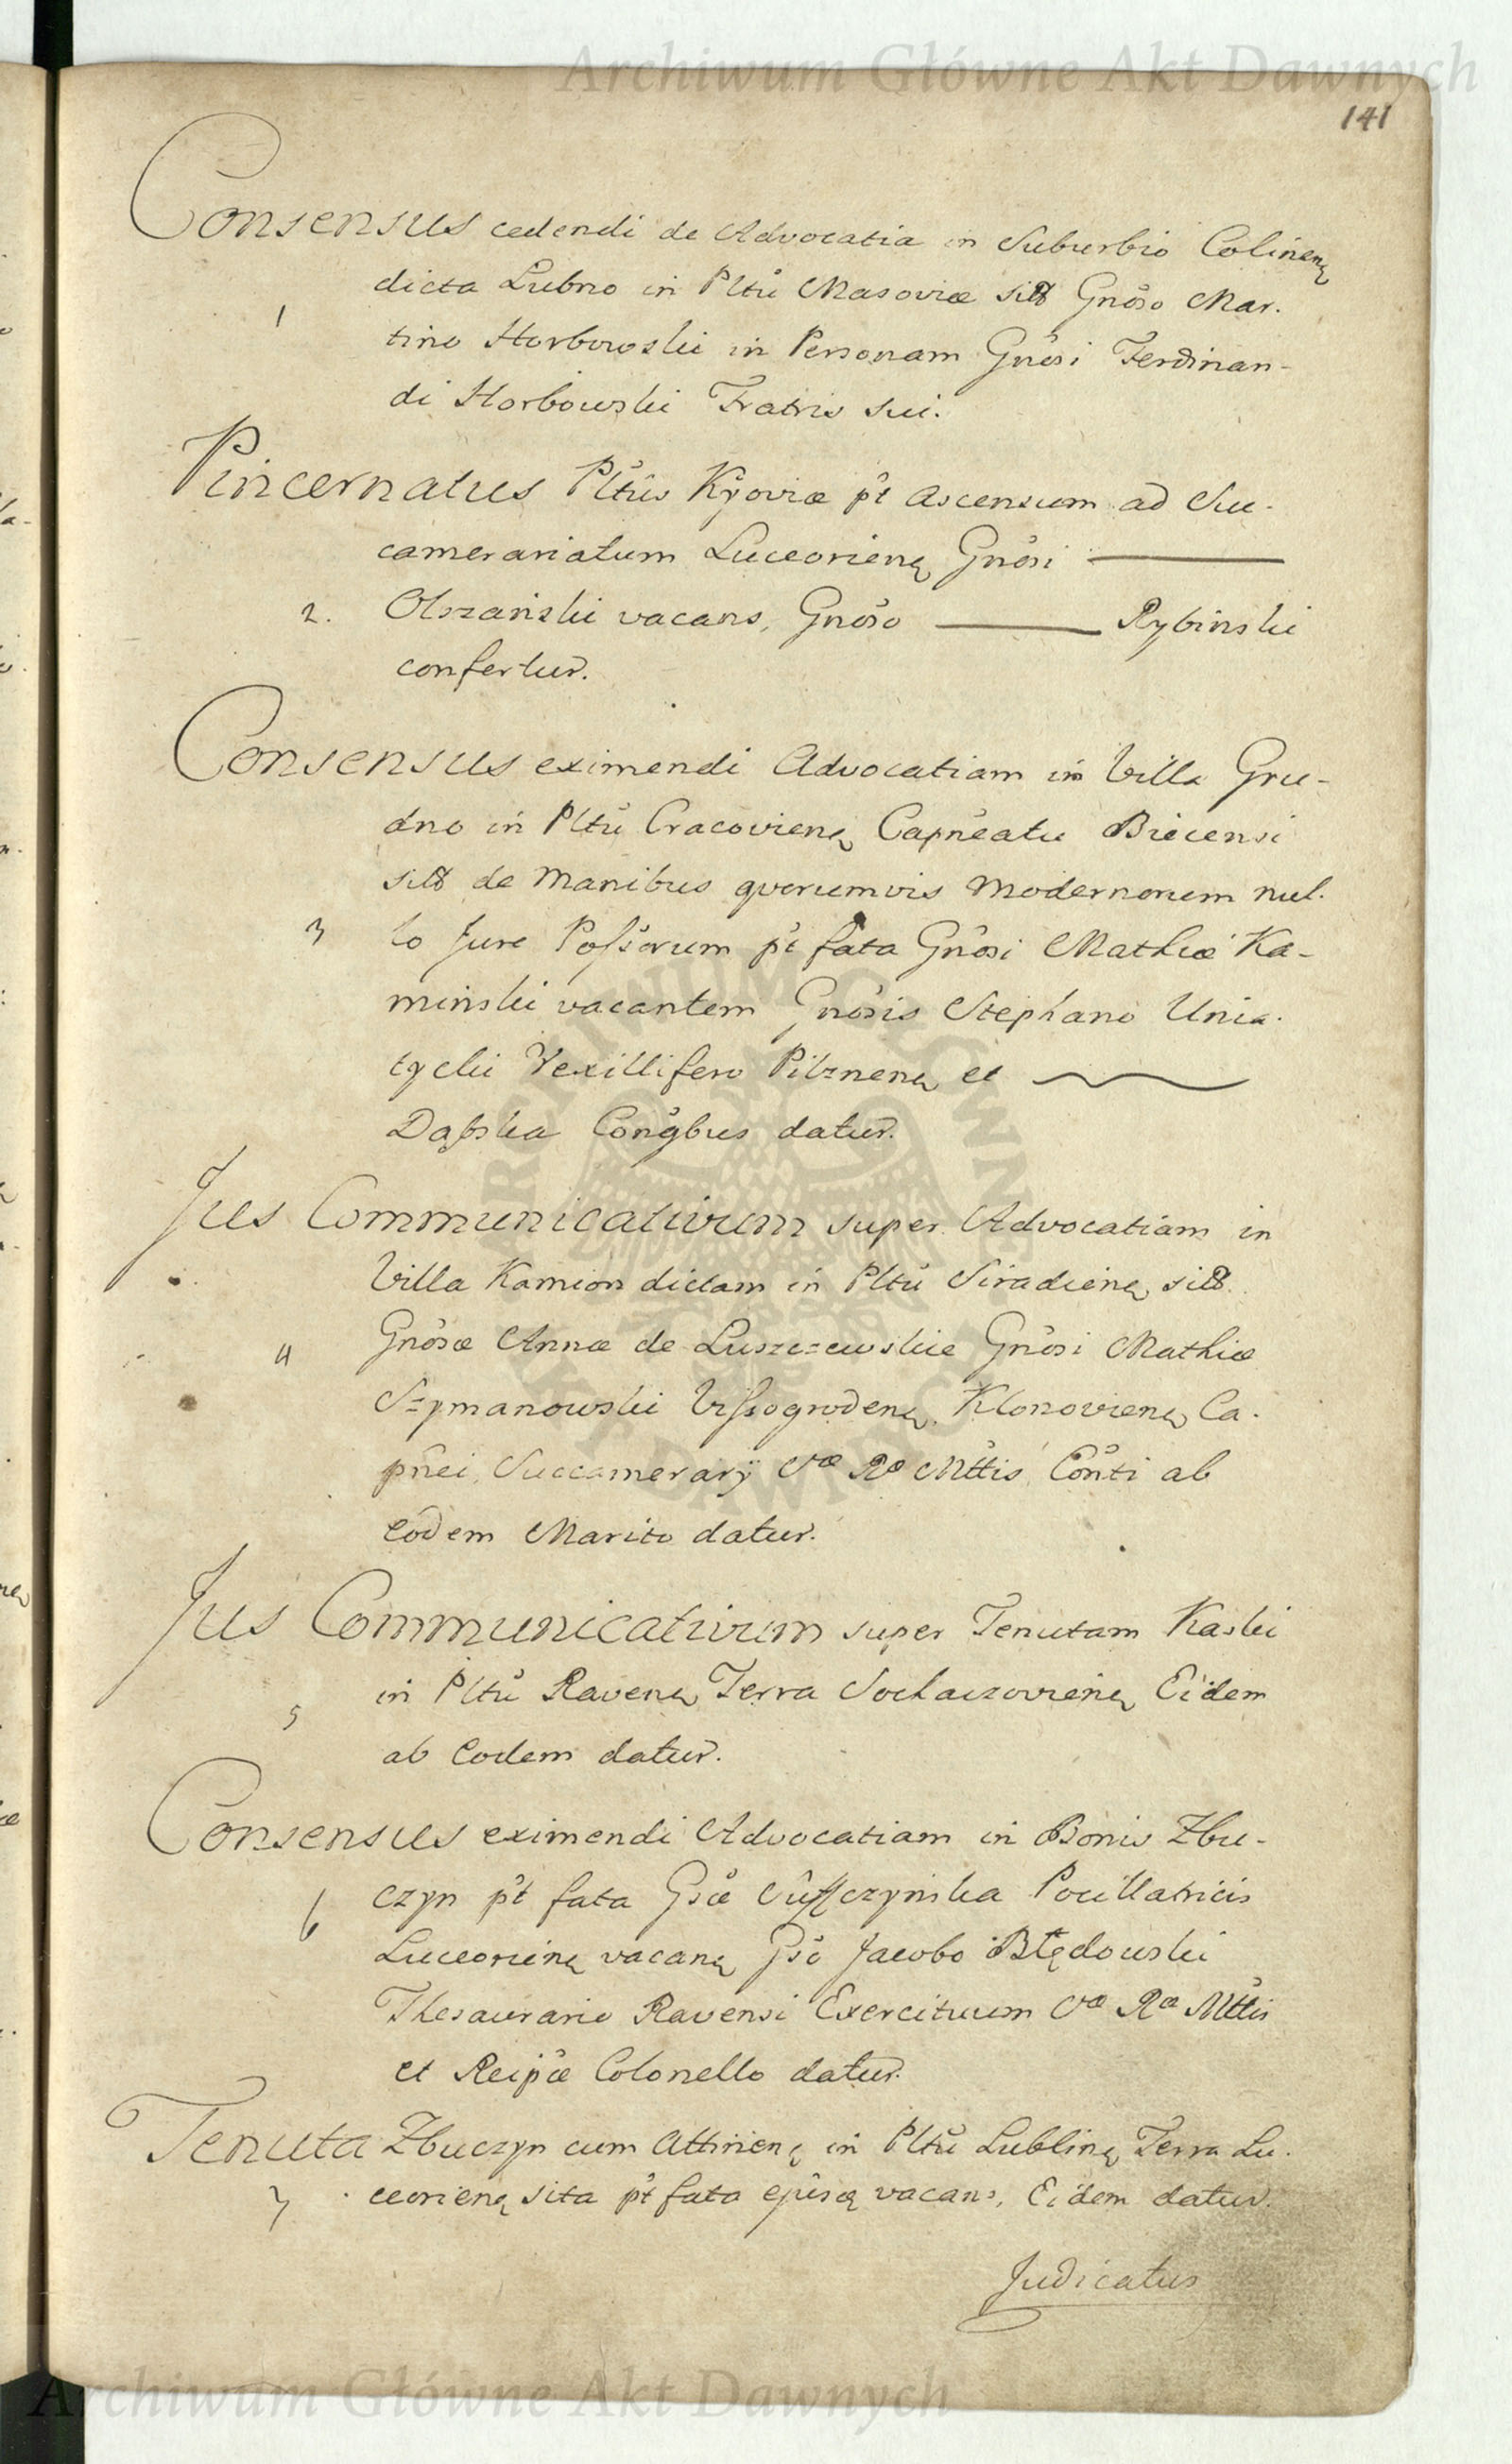 Archiwum Główne Akt Dawnych
141
Consensus cedendi de Advocatia in Suburbio Colinenȩ
dicta Lubno in Pltũ Masoviæ sit8 Gnõso Mar.
1
tino Horbowski in Personam Gnõsi Ferdinan-
di Horbowski Fratris sui.
Pincernatus Pltũs Kÿoviæ p̃t Ascensum ad Suc-
camerariatum Luceorienȩ Gnõsi ———
2. Olszański vacans, Gnõso ——— Rybinski
confertur.
Consensus eximendi Advocatiam in Villa Gru-
dno in Pltũ Cracovienȩ Capñeatu Biecensi
sit8 de manibus quorumvis modernorum nul.
3 lo Jure Poſsõrum p̃t fata Gnõsi Mathiæ Ka-
minski vacantem Gnõsis Stephano Unia.
tycki Vexillifero Pilznenȩ et ———
Dąbska Conĝbus datur.
Jus Communicativum super Advocatiam in
Villa Kamion dictam in Pltũ Siradienȩ sit8
4 Gnõsæ Annæ de Luszczewskie Gnõsi Mathiæ
Szymanowski Viſsogrodenȩ, Klonovienȩ Ca.
pñei, Succamerarÿ Sæ Ræ Mttis, Cõnti ab
eõdem Marito datur.
Jus Communicativum super Tenutam Kaski
in Pltũ Ravenȩ Terra Sochaczovienȩ Eidem
5
ab Eodem datur.
Consensus eximendi Advocatiam in Bonis Zbu-
6 czyn p̃t fata Gsæ Suffczyńska Pocillatricis
Luceorienȩ vacanȩ Gsõ Jacobo Błędowski
Thesaurario Ravensi Exercituum Sæ Ræ Mttis
et Reipæ Colonello datur.
Tenuta Zbuczyn cum Attinenȩ in Pltũ Lublinȩ Terra Lu.
7 ceorienȩ sita p̃t fata ejusȩ vacans, Eidem datur.
Judicatus
Archiwum Główne Akt Dawnych